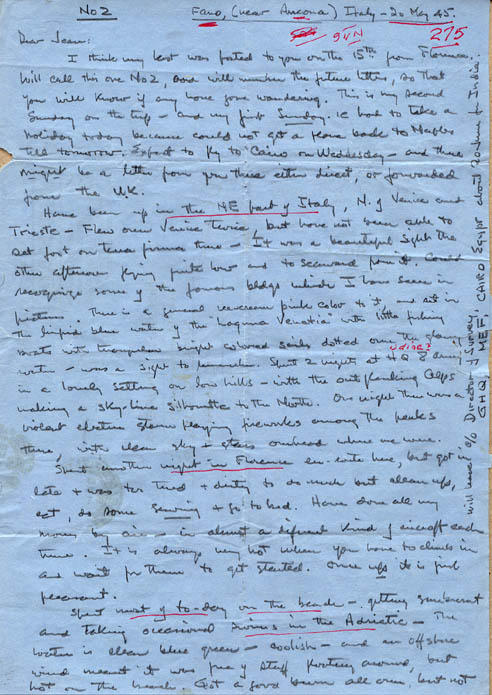 No 2 Fano, (near Ancona) Italy - 20 May 45.
9 VN 275
Dear Jean:
I think my last was posted to you on the 15th from Florence.
Will call this one No 2, and will number the future letters, so that
you will know if any have gone wandering. This is my second
Sunday on the trip - and my first Sunday. Had to take a
holiday today because could not get a plane back to Naples
till tomorrow. Expect to fly to Cairo on Wednesday - and there
might be a letter from you there either direct, or forwarded
from the U.K.
Have been up in the NE part of Italy, N. of Venice and
Trieste - Flew over Venice twice, but have not been able to
set foot on terra firma there - It was a beautiful sight the
other afternoon flying quite low and to seaward from it. Could
recognize some of the famous bldgs which I have seen in
pictures. There is a general pink color to it, and set in
the limpid blue water of the "Laguna Venetia" with little fishing
boats with triangular bright colored sails dotted over the glassy
water - was a sight to remember. Spent 2 nights at HQ 8 Army -
udine?
in a lovely setting on low hills - with the Alps
making a sky-line silhouette to the North. One night there was a
violent electric storm playing fireworks among the peaks
there, with clear sky & stars overhead where we were.
Spent another night in Florence en-route here, but got in
late & was too tired & dirty to do much but clean up,
eat, do some sewing & go to bed. Have done all my
moving by air - in almost a different kind of aircraft each
time. It is always very hot when you have to climb in
and wait for them to get started. Once up it is just
pleasant.
Spent most of to-day on the beach - getting sunburnt
and taking occasional swims in the Adriatic - The
water is clean blue green - coolish - and an offshore
wind meant it was free of stuff floating around, but
not on the beach. Got a good burn all over, but not
will leave c/o Director of Survey
GHQ, MEF, CAIRO Egypt about for India